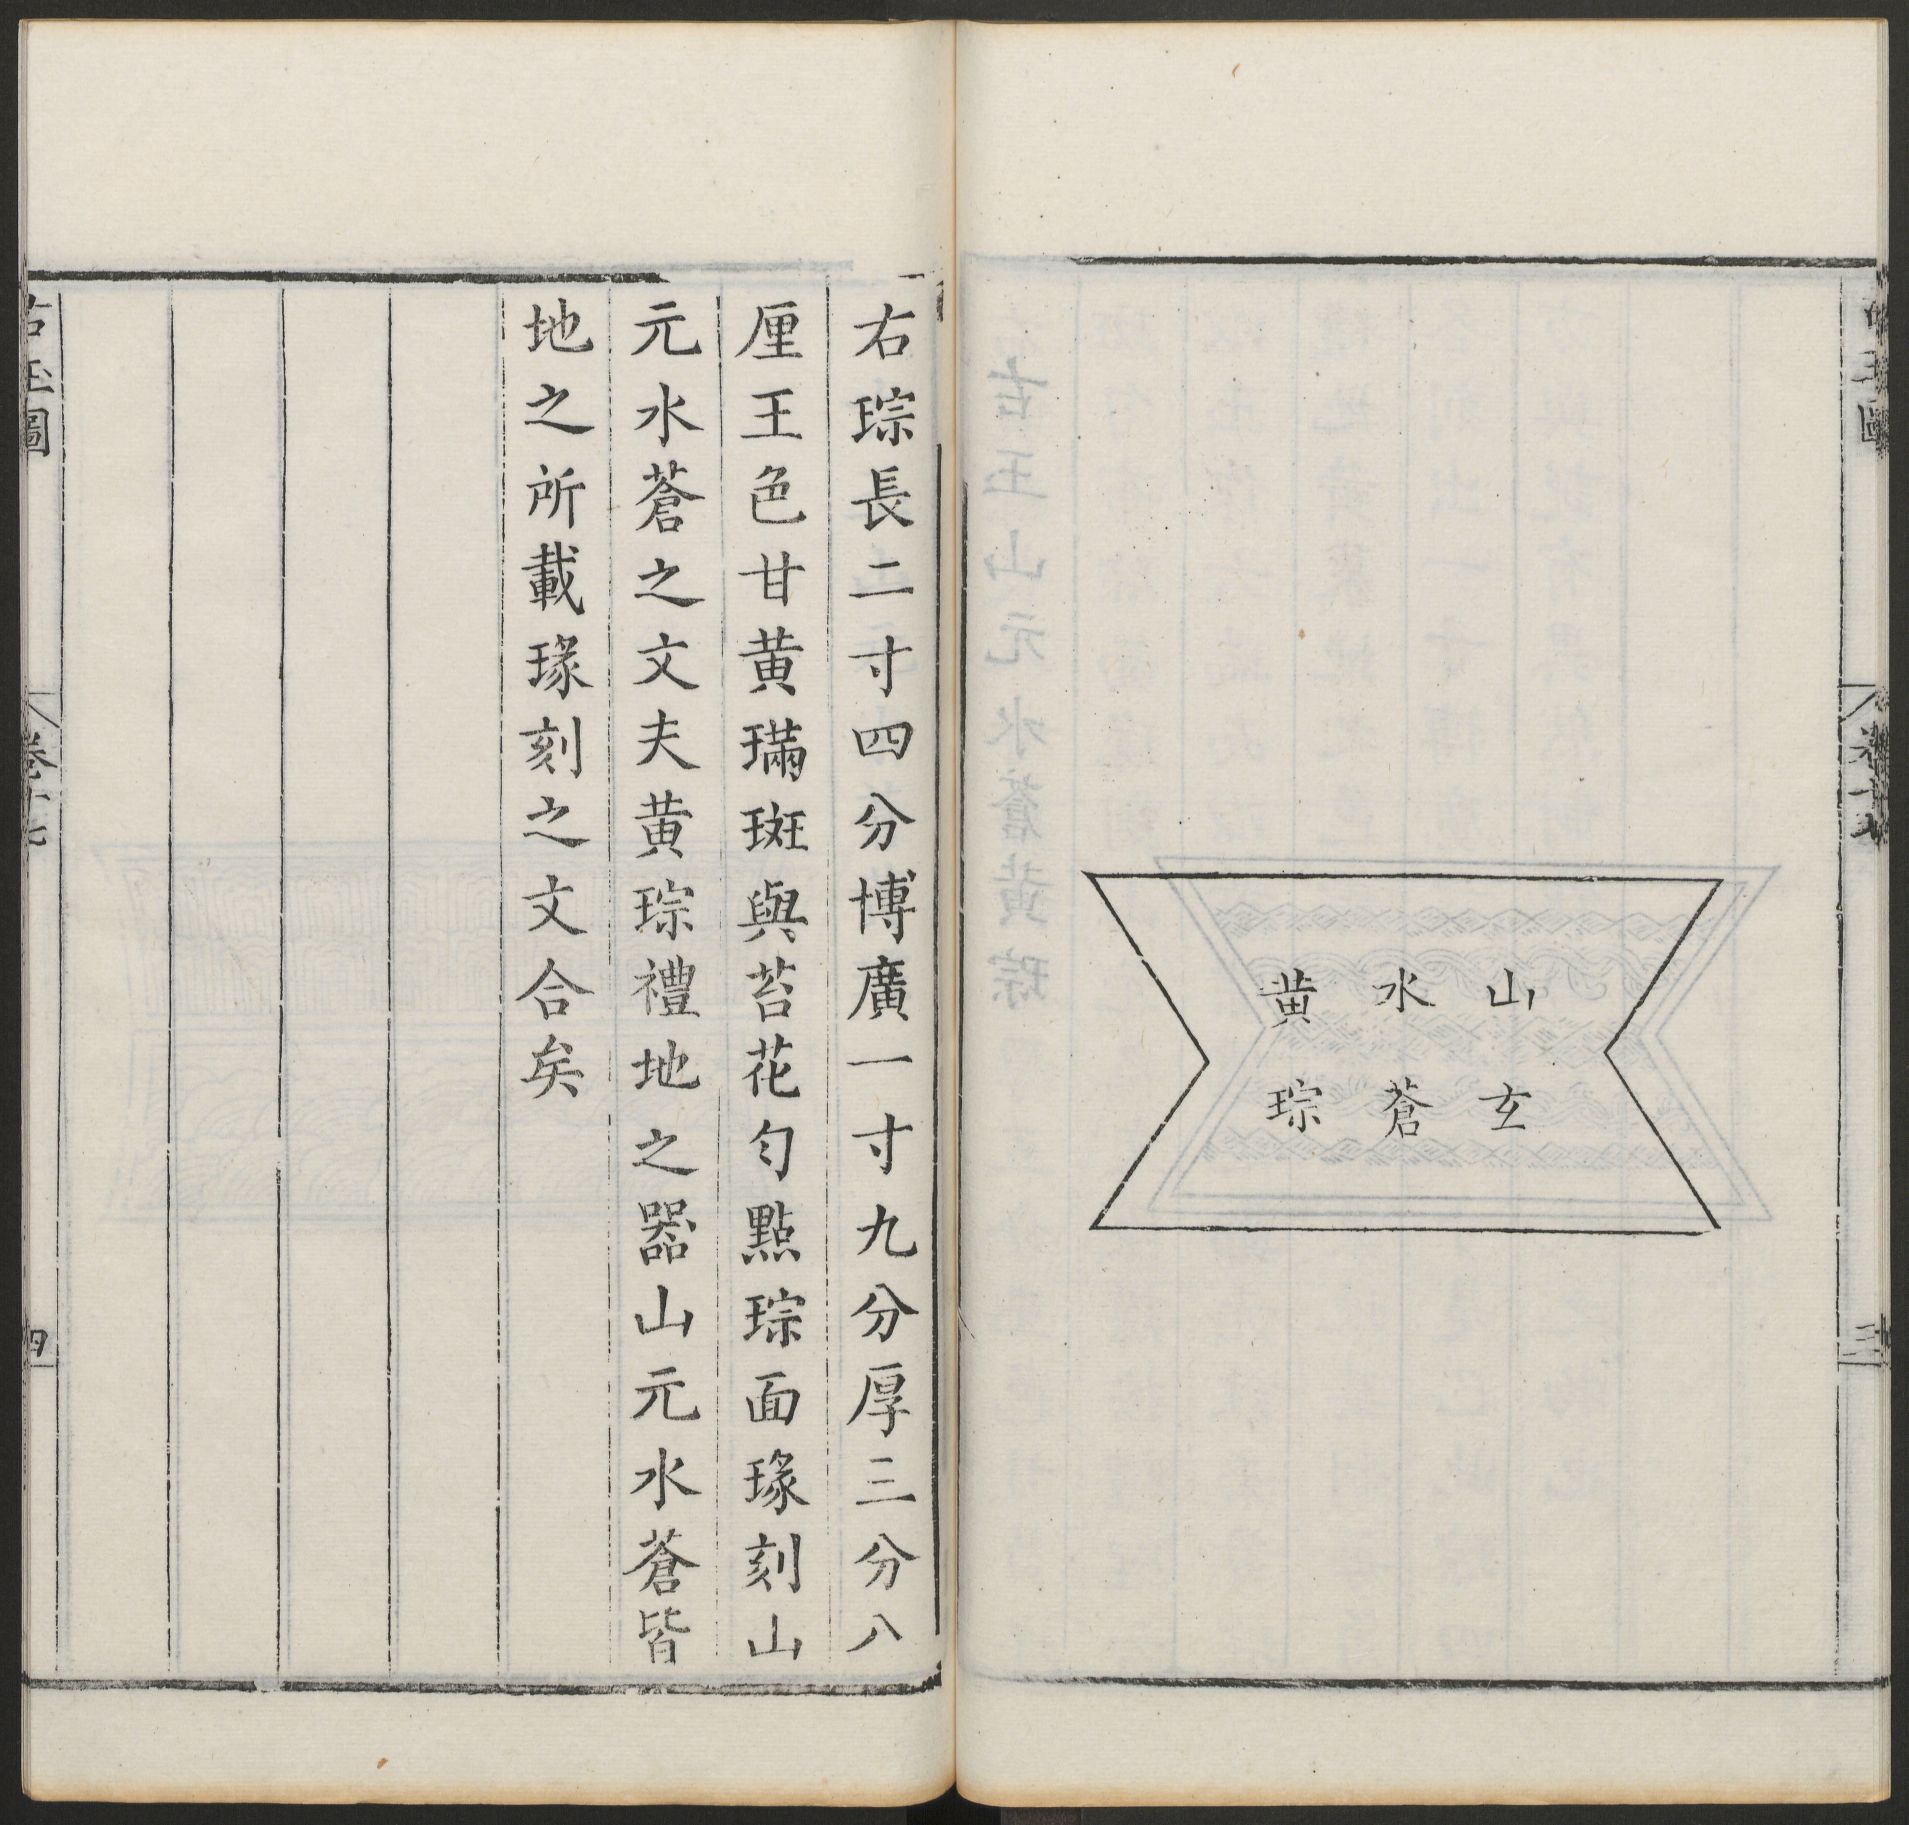 山玄
水蒼
黄琮
右琮長二寸四分博廣一寸九分厚三分八
厘王色甘黄璊斑與苔花勻點琮面瑑刻山
元水蒼之文夫黄琮禮地之器山元水蒼皆
地之所載瑑刻之文合矣
古玉圖
卷十七
四